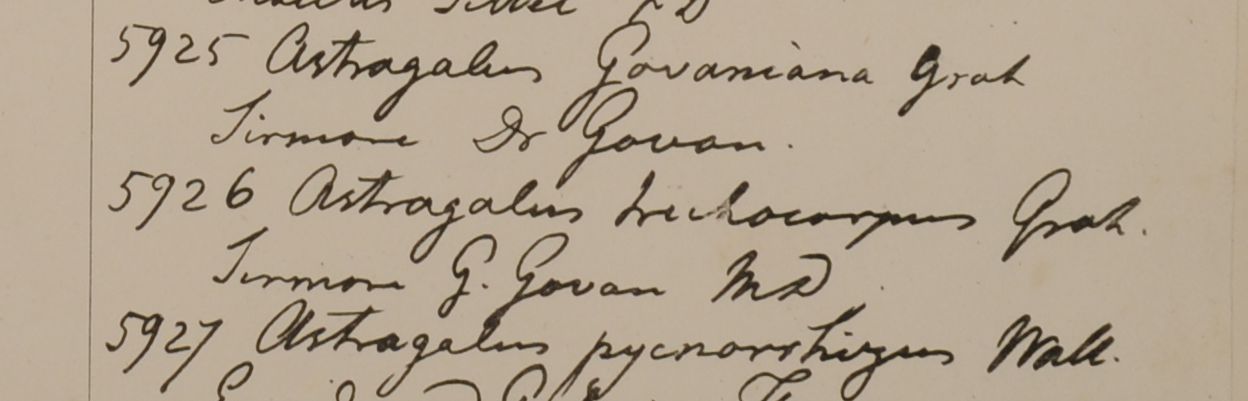 5925 Astragalus Govaniana Grah
Sirmore Dr Govan.
5926 Astragalus trichocarpus Grah.
Sirmore G. Govan MD
5927 Astragalus pycnorrhizus Wall.